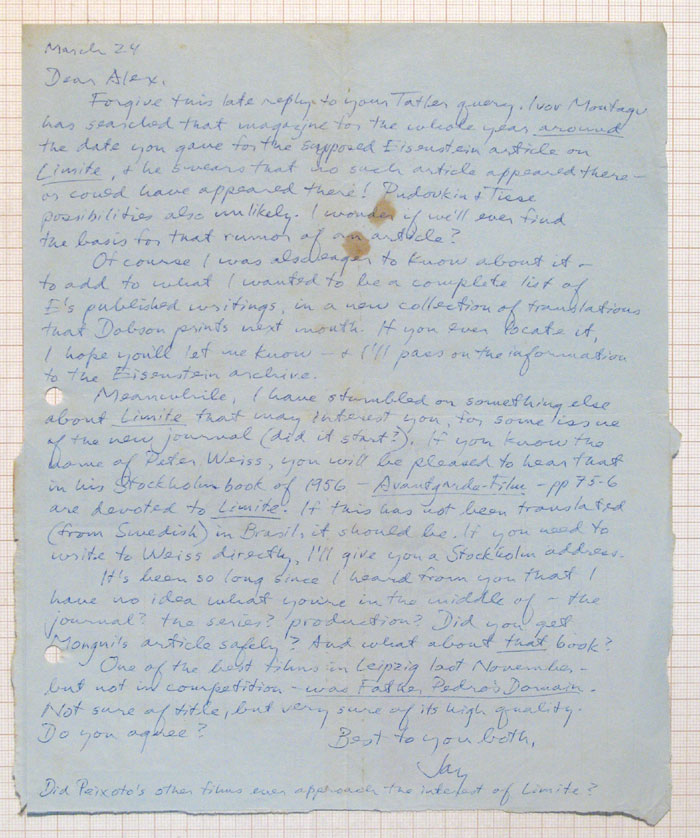 March 24
Dear Alex,
Forgive this late reply to your Tatler query. Ivor Montagu
has searched that magazine for the whole year around
the date you gave for the supposed Eisenstein article on
Limite, & he swears that no such article appeared there –
or could have appeared there! Pudovkin & Tisse
possibilities also unlikely. I wonder if we'll ever find
the basis for that rumor of an article?
Of course I was also eager to know about it –
to add to what I wanted to be a complete list of
E's published writings, in a new collection of translations
that Dobson prints next month. If you ever locate it,
I hope you'll let me know – & I'll pass on the information
to the Eisenstein archive.
Meanwhile, I have stumbled on something else
about Limite that may interest you, for some issue
of the new journal (did it start?). If you know the
name of Peter Weiss, you will be pleased to hear that
in his Stockholm book of 1956 – Avantgarde-Film – pp 75-6
are devoted to Limite. If this has not been translated
(from Swedish) in Brasil, it should be. If you need to
write to Weiss directly, I'll give you a Stockholm address.
It's been so long since I heard from you that I
have no idea what you're in the middle of – the
journal? the series? production? Did you get
article safely? And what about that book?
One of the best films in Leipzig last November –
but not in competition – was Father Pedro's Domain.
Not sure of title, but very sure of its high quality.
Do you agree?
Best to you both,
Jay
Did Peixoto's other films ever approach the interest of Limite?